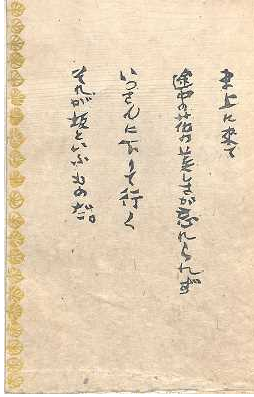 真上に来て
途中の花の美しさが忘れられず
いつさんに下りて行く
それが坂といふものだ。